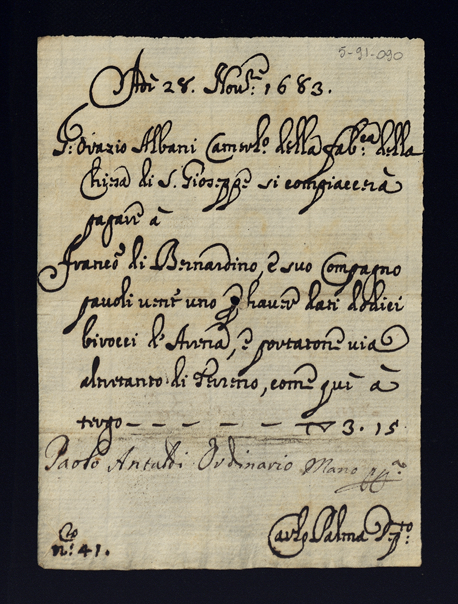 5-91-090
Adi 28. Nov.e 1683.
S.r Orazio Albani Camerl.o della fab.ca della
Chiesa di S. Gioseppe si compiacerà
pagare à
Franc.o di Bernardino, è suo Compagno
pauoli uent' uno p hauer dati dodici
birocci d'Arena, è portatone uia
altretanto di Terreno, come qui à
tergo - - - - - - 3. 15
Paolo Antaldi Ordinario Mano pp.a
Carlo Palma
n.o 41.